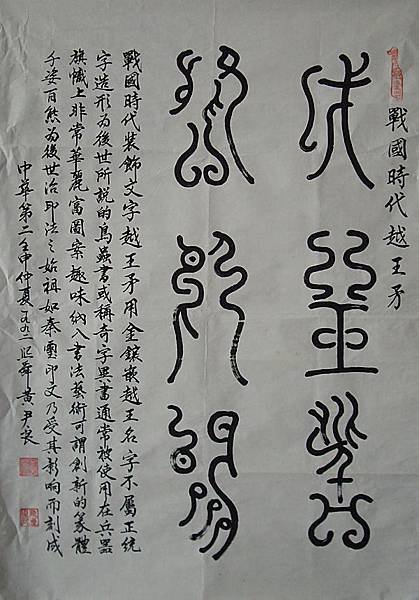 戰國時代越王矛
戉王
戰國時代裝飾文字越王矛用金鑲嵌越王名字不屬正統
字造形為後世所說的鳥蟲書或稱奇字異書通常被使用在兵器
旗幟上非常華麗富圖案趣味納入書法藝術可謂創新的篆體
千姿百態為後世治印法之始祖如秦璽印文乃受其影响而刻成
中華第二壬申仲夏一九九二 黃尹